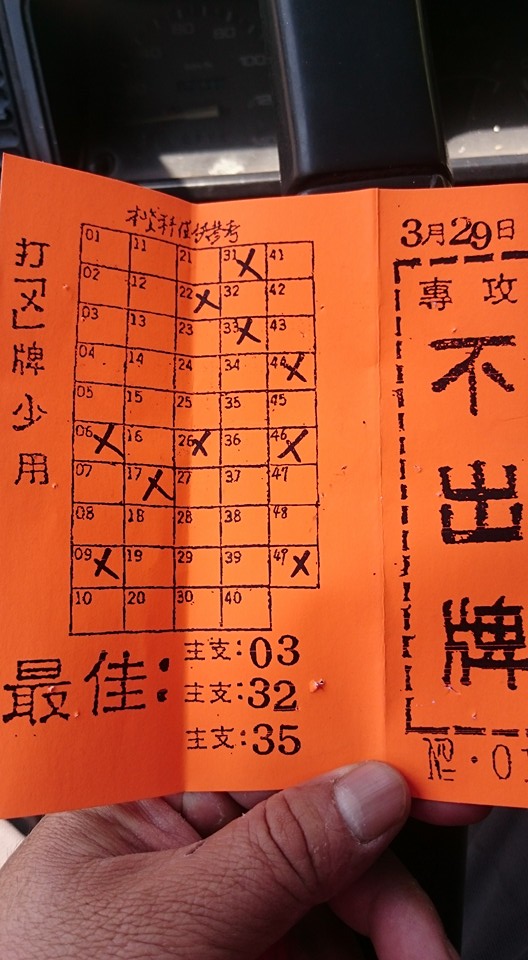 打「X」牌少用
01 11 21 31 41
02 12 22 32 42
03 13 23 33 43
04 14 24 34 44
05 15 25 35 45
06 16 26 36 46
07 17 27 37 47
08 18 28 38 48
09 19 29 39 49
10 20 30 40
最佳：
主支：03
主支：32
主支：35
3月29日
專攻
不出
№.0